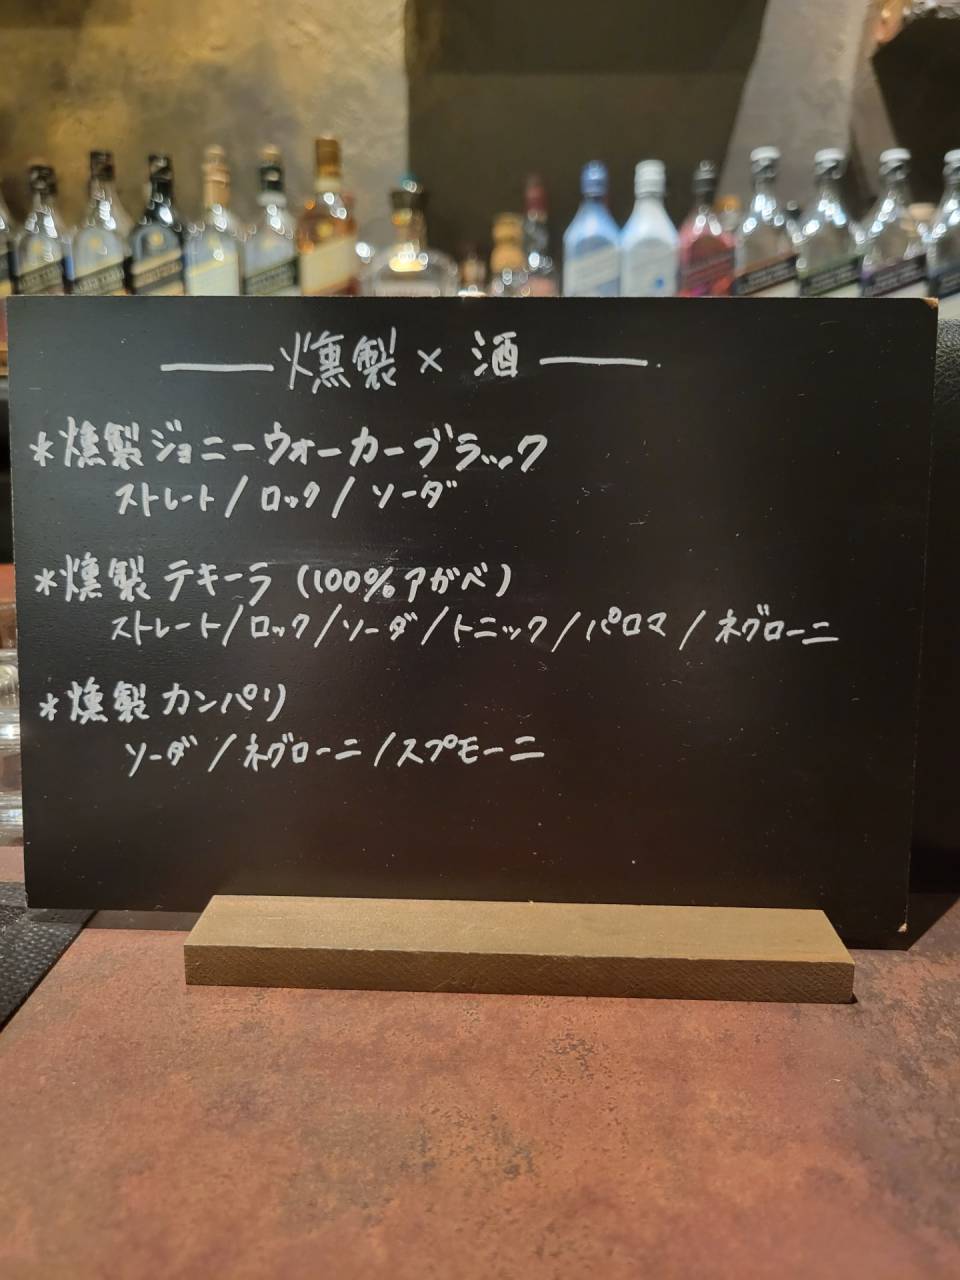 燻製 × 酒
*燻製ジョニーウォーカーブラック
ストレート/ロック/ソーダ
*燻製テキーラ(100%アガベ)
ストレート/ロック/ソーダ/トニック/パロマ/ネグローニ
*燻製カンパリ
ソーダ/ネグローニ/スプモーニ